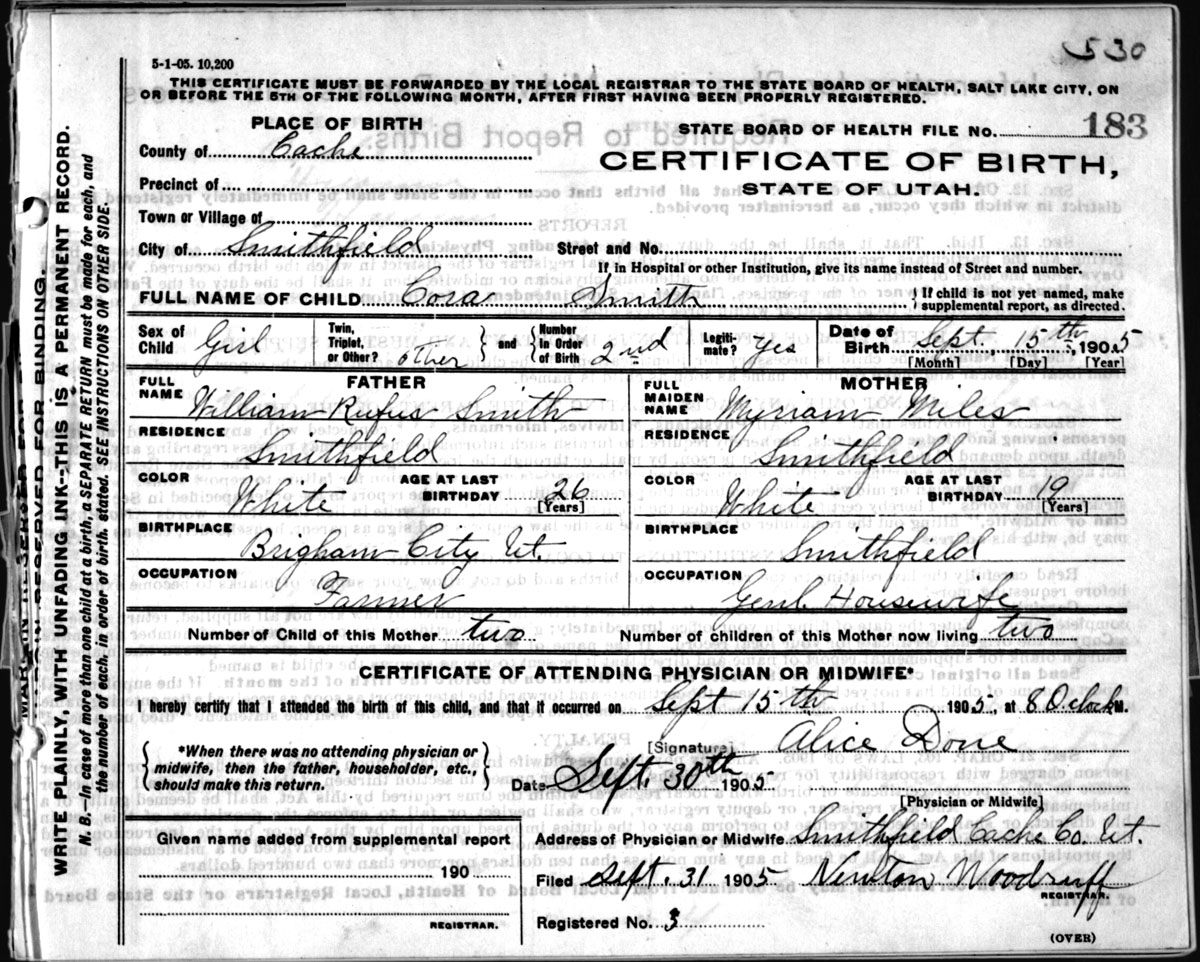 530
5-1-05. 10,200
THIS CERTIFICATE MUST BE FORWARDED BY THE LOCAL REGISTRAR TO THE STATE BOARD OF HEALTH, SALT LAKE CITY, ON
OR BEFORE THE 5TH OF THE FOLLOWING MONTH, AFTER FIRST HAVING BEEN PROPERLY REGISTERED.
PLACE OF BIRTH
STATE BOARD OF HEALTH FILE NO. 183
County of Cache
CERTIFICATE OF BIRTH,
STATE OF UTAH.
Precinct of
Town or Village of
City of Smithfield Street and No.
If in Hospital or other Institution, give its name instead of Street and number.
FULL NAME OF CHILD Cora Smith } If child is not yet named, make supplemental report, as directed.
Sex of Child Girl Twin, Triplet, or Other? other } and { Number In Order of Birth 2nd Legiti-mate? Yes Date of Birth Sept. 15th, 1905
[Month] [Day] [Year]
FATHER
FULL NAME William Rufus Smith
RESIDENCE Smithfield
COLOR White AGE AT LAST BIRTHDAY 26 [Years]
BIRTHPLACE Brigham City Ut.
OCCUPATION Farmer
MOTHER
FULL MAIDEN NAME Myrriam Miles
RESIDENCE Smithfield
COLOR White AGE AT LAST BIRTHDAY 19 [Years]
BIRTHPLACE Smithfield
OCCUPATION Genl. Housewife
Number of Child of this Mother two Number of children of this Mother now living two
CERTIFICATE OF ATTENDING PHYSICIAN OR MIDWIFE*
I hereby certify that I attended the birth of this child, and that it occurred on Sept 15th 1905, at 8 Oclock M.
{ *When there was no attending physician or midwife, then the father, householder, etc., should make this return. }
[Signature] Alice Done
Date Sept 30th 1905
[Physician or Midwife]
Given name added from supplemental report
190
REGISTRAR.
Address of Physician or Midwife Smithfield Cache Co. Ut.
Filed Sept. 31 1905 Newton Woodruff
REGISTRAR.
Registered No. 3
(OVER)
MARGIN RESERVED FOR BINDING.
WRITE PLAINLY, WITH UNFADING INK--THIS IS A PERMANENT RECORD.
N. B. In case of more than one child at a birth, a SEPARATE RETURN must be made for each, and
the number of each, in order of birth, stated. SEE INSTRUCTIONS ON OTHER SIDE.